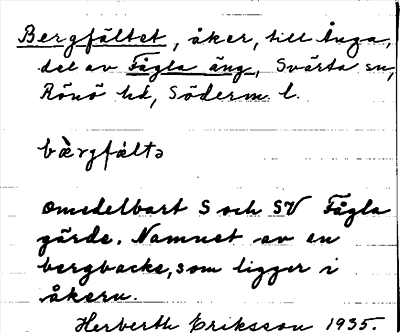 Bergfältet, åker, till Ånga,
del av Fågla äng, Svärta sn,
Rönö hd, Söderm. l.
bæ̀rgfæltə
omedelbart S och SV Fågla
gärde. Namnet av en
bergbacke, som ligger i
åkern.
Herberth Eriksson 1935.